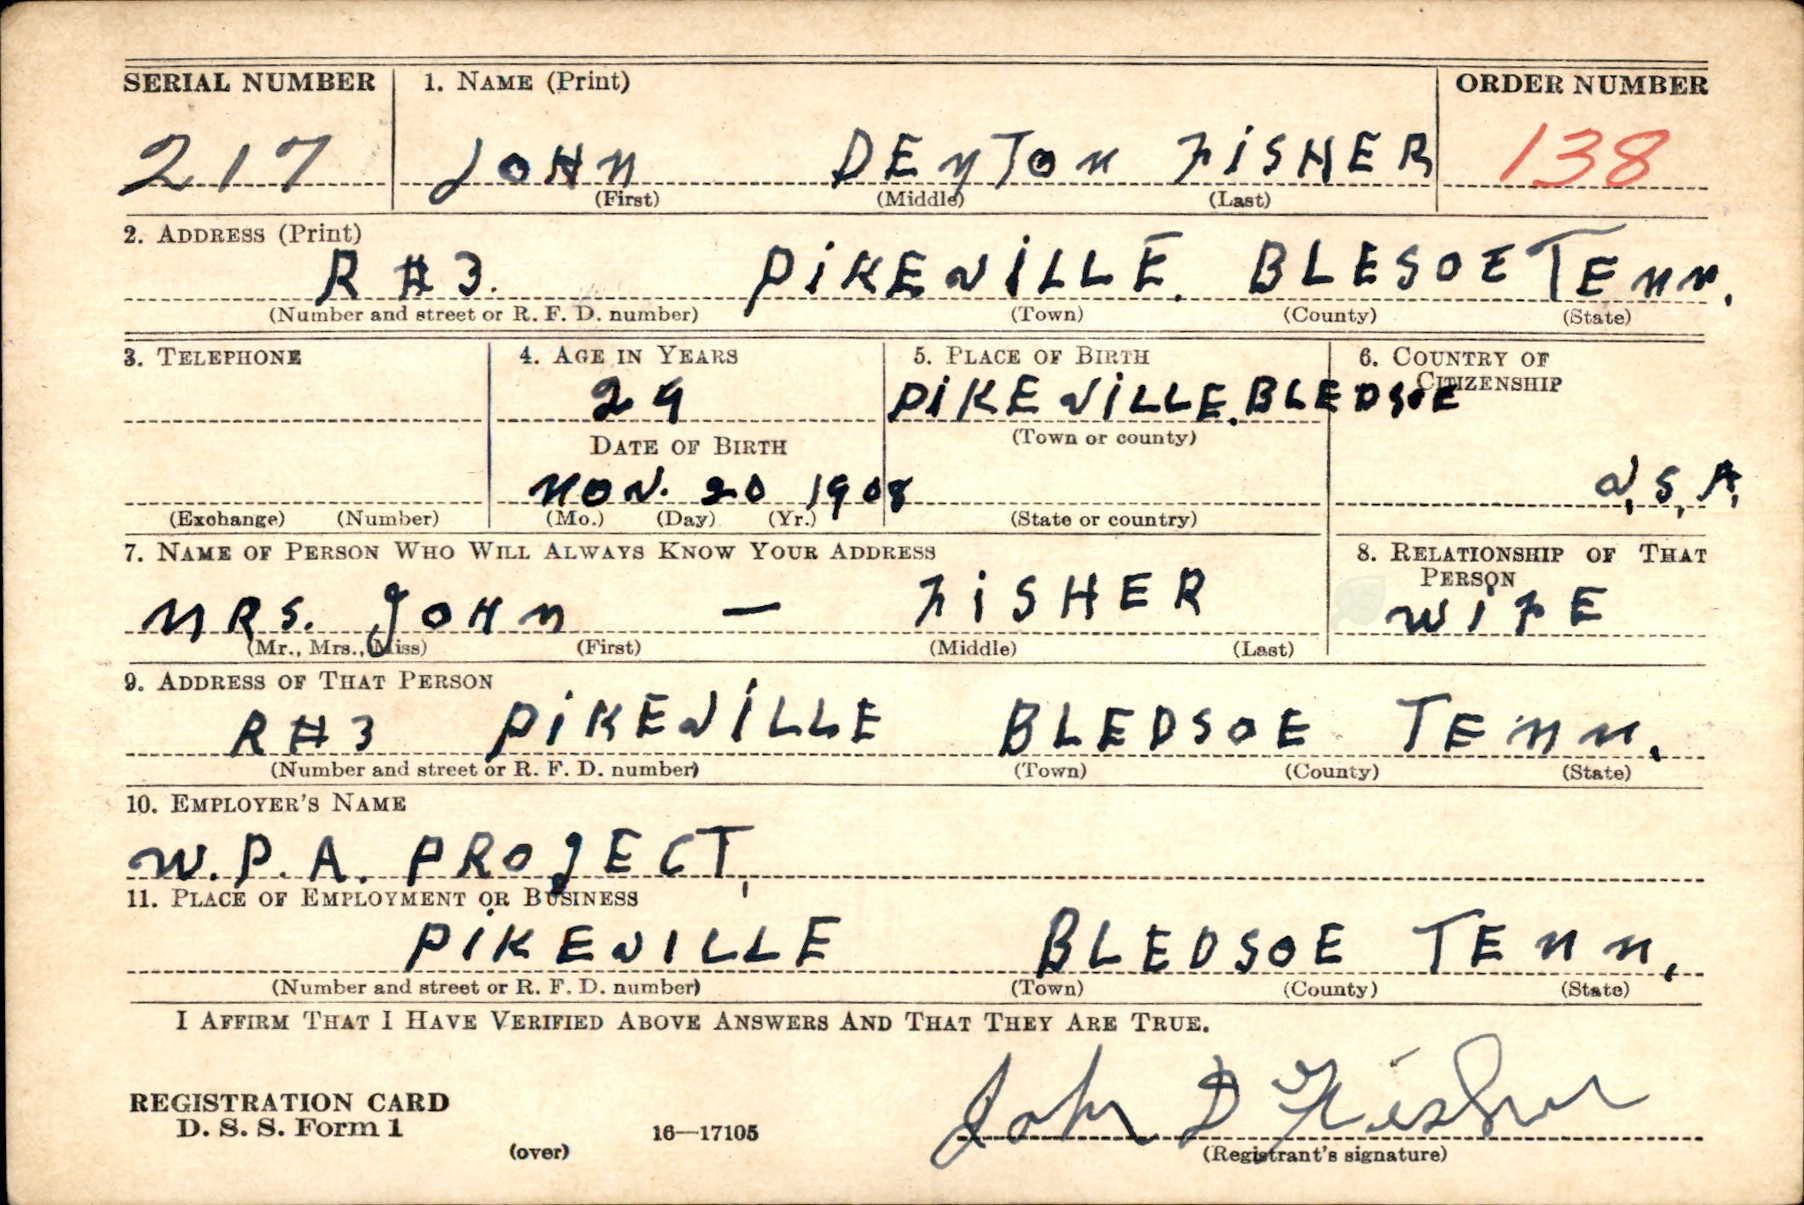 SERIAL NUMBER 1. NAME (Print) ORDER NUMBER
217 JOHN DEYTON FISHER 138
(First) (Middle) (Last)
2. ADDRESS (Print)
R #3. PIKEVILLE. BLESOE TENN.
(Number and street or R. F. D. number) (Town) (County) (State)
3. TELEPHONE 4. AGE IN YEARS 5. PLACE OF BIRTH 6. COUNTRY OF CITIZENSHIP
29 PIKEVILLE. BLEDSOE
DATE OF BIRTH (Town or county)
NOV. 20 1908 U.S.A.
(Exchange) (Number) (Mo.) (Day) (Yr.) (State or country)
7. NAME OF PERSON WHO WILL ALWAYS KNOW YOUR ADDRESS 8. RELATIONSHIP OF THAT PERSON
MRS. JOHN — FISHER WIFE
(Mr., Mrs., Miss) (First) (Middle) (Last)
9. ADDRESS OF THAT PERSON
R#3 PIKEVILLE BLEDSOE TENN.
(Number and street or R. F. D. number) (Town) (County) (State)
10. EMPLOYER'S NAME
W.P.A. PROJECT.
11. PLACE OF EMPLOYMENT OR BUSINESS
PIKEVILLE BLEDSOE TENN.
(Number and street or R. F. D. number) (Town) (County) (State)
I AFFIRM THAT I HAVE VERIFIED ABOVE ANSWERS AND THAT THEY ARE TRUE.
John D Fisher
REGISTRATION CARD
D. S. S. Form 1 16—17105
(over) (Registrant's signature)